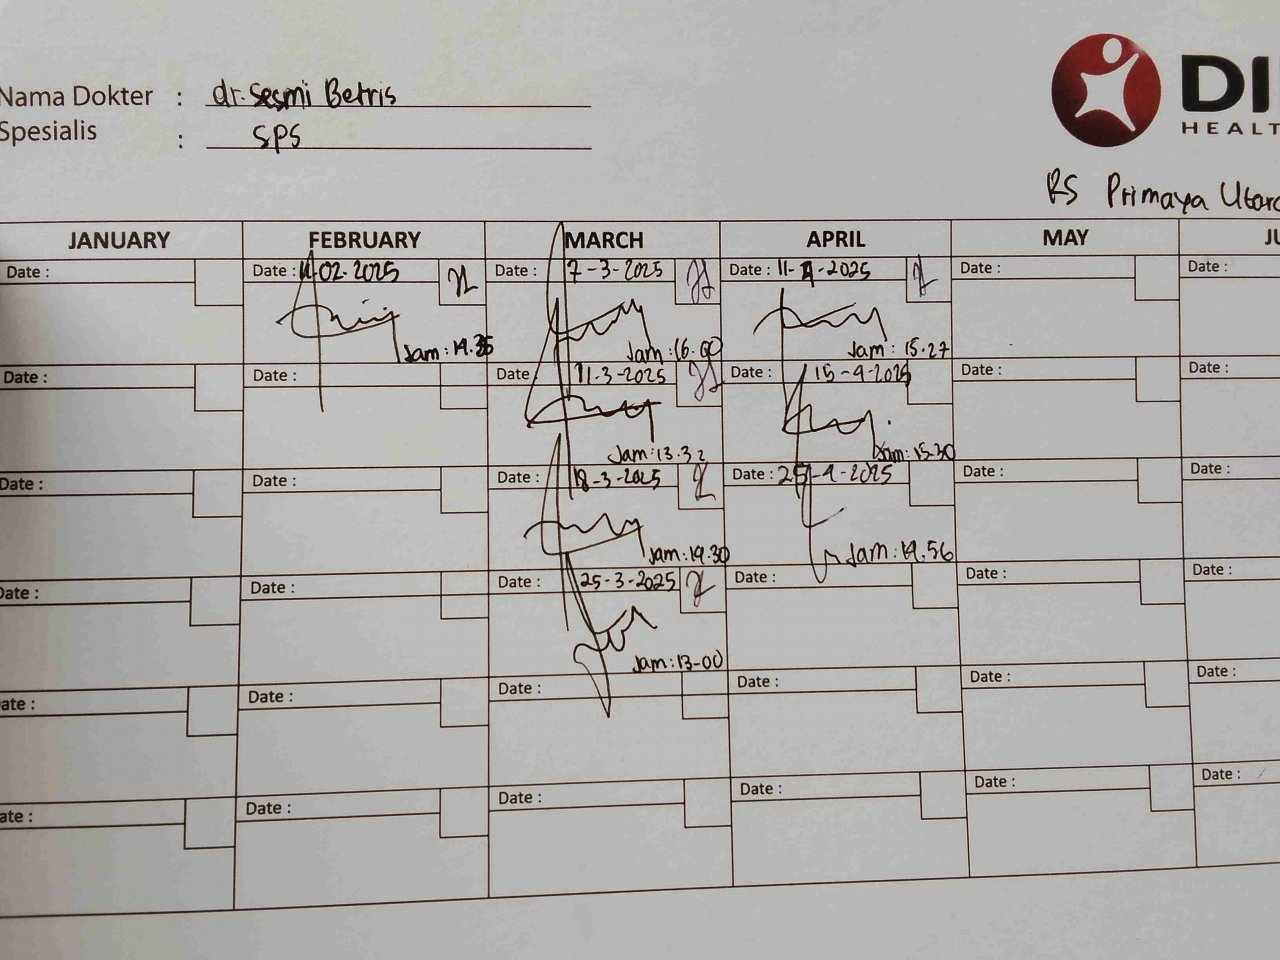 Nama Dokter : dr. Sesmi Betris
Spesialis : SPS
DI
HEALT
RS Primaya Utara
JANUARY FEBRUARY MARCH APRIL MAY JU
Date : Date : 11-02-2025 Date : 7-3-2025 Date : 11-4-2025 Date : Date :
Jam: 14.35 Jam: 16.00 Jam: 15.27
Date : Date : Date : 11-3-2025 Date : 15-4-2025 Date : Date :
Jam: 13.32 Jam: 15.30
Date : Date : Date : 18-3-2025 Date : 25-4-2025 Date : Date :
Jam: 14.30 Jam: 14.56
Date : Date : Date : 25-3-2025 Date : Date : Date :
Jam: 13-00
ate : Date : Date : Date : Date : Date :
ate : Date : Date : Date : Date : Date :